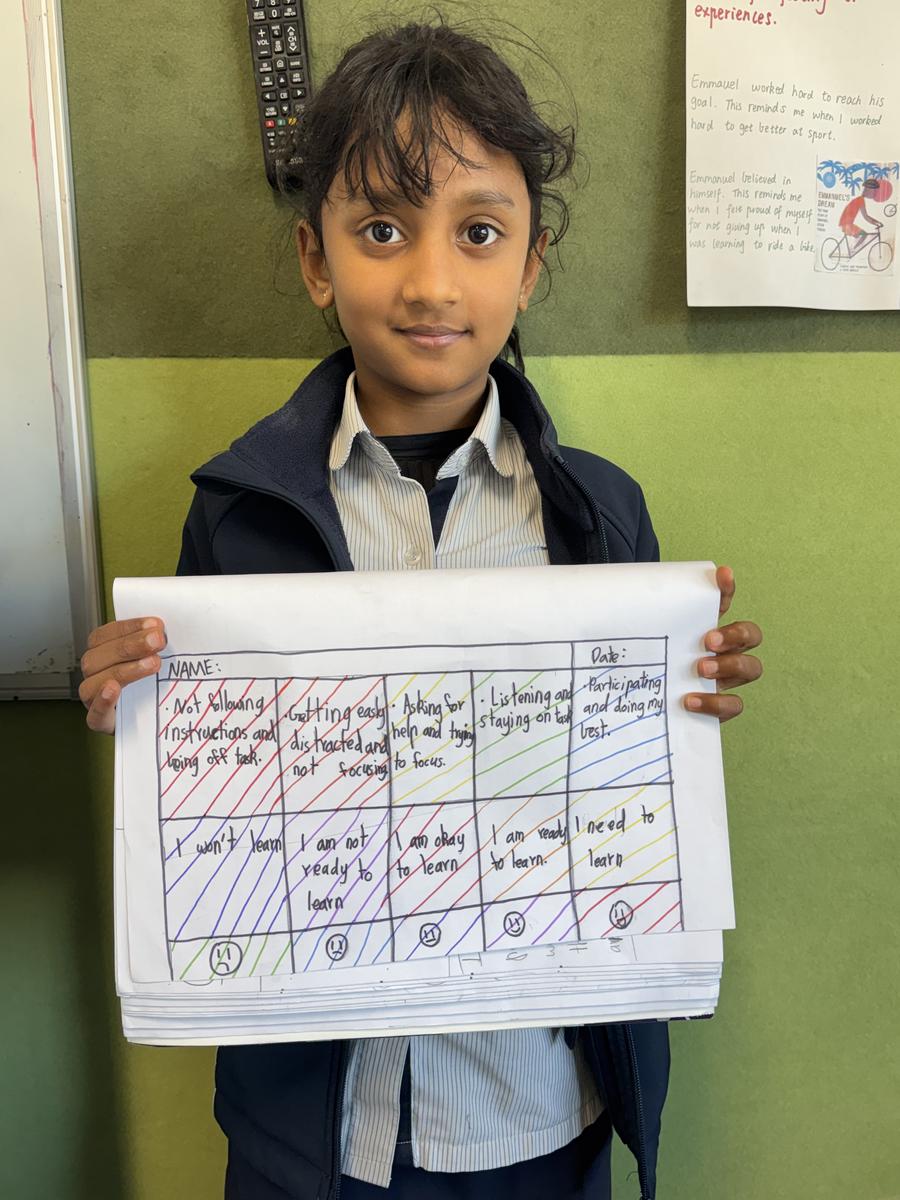 experiences.
Emmanuel worked hard to reach his
goal. This reminds me when I worked
hard to get better at sport.
Emmanuel believed in
himself. This reminds me
when I felt proud of myself
for not giving up when I
was learning to ride a bike
EMMANUEL'S
DREAM
7 8
0
VOL
CH
NAME:
Date:
· Not following
instructions and
being off task.
· Getting easly
distracted and
not focusing
· Asking for
help and trying
to focus.
· Listening and
staying on task
· Participating
and doing my
best.
I won't learn
I am not
ready to
learn
I am okay
to learn
I am ready
to learn.
I need to
learn